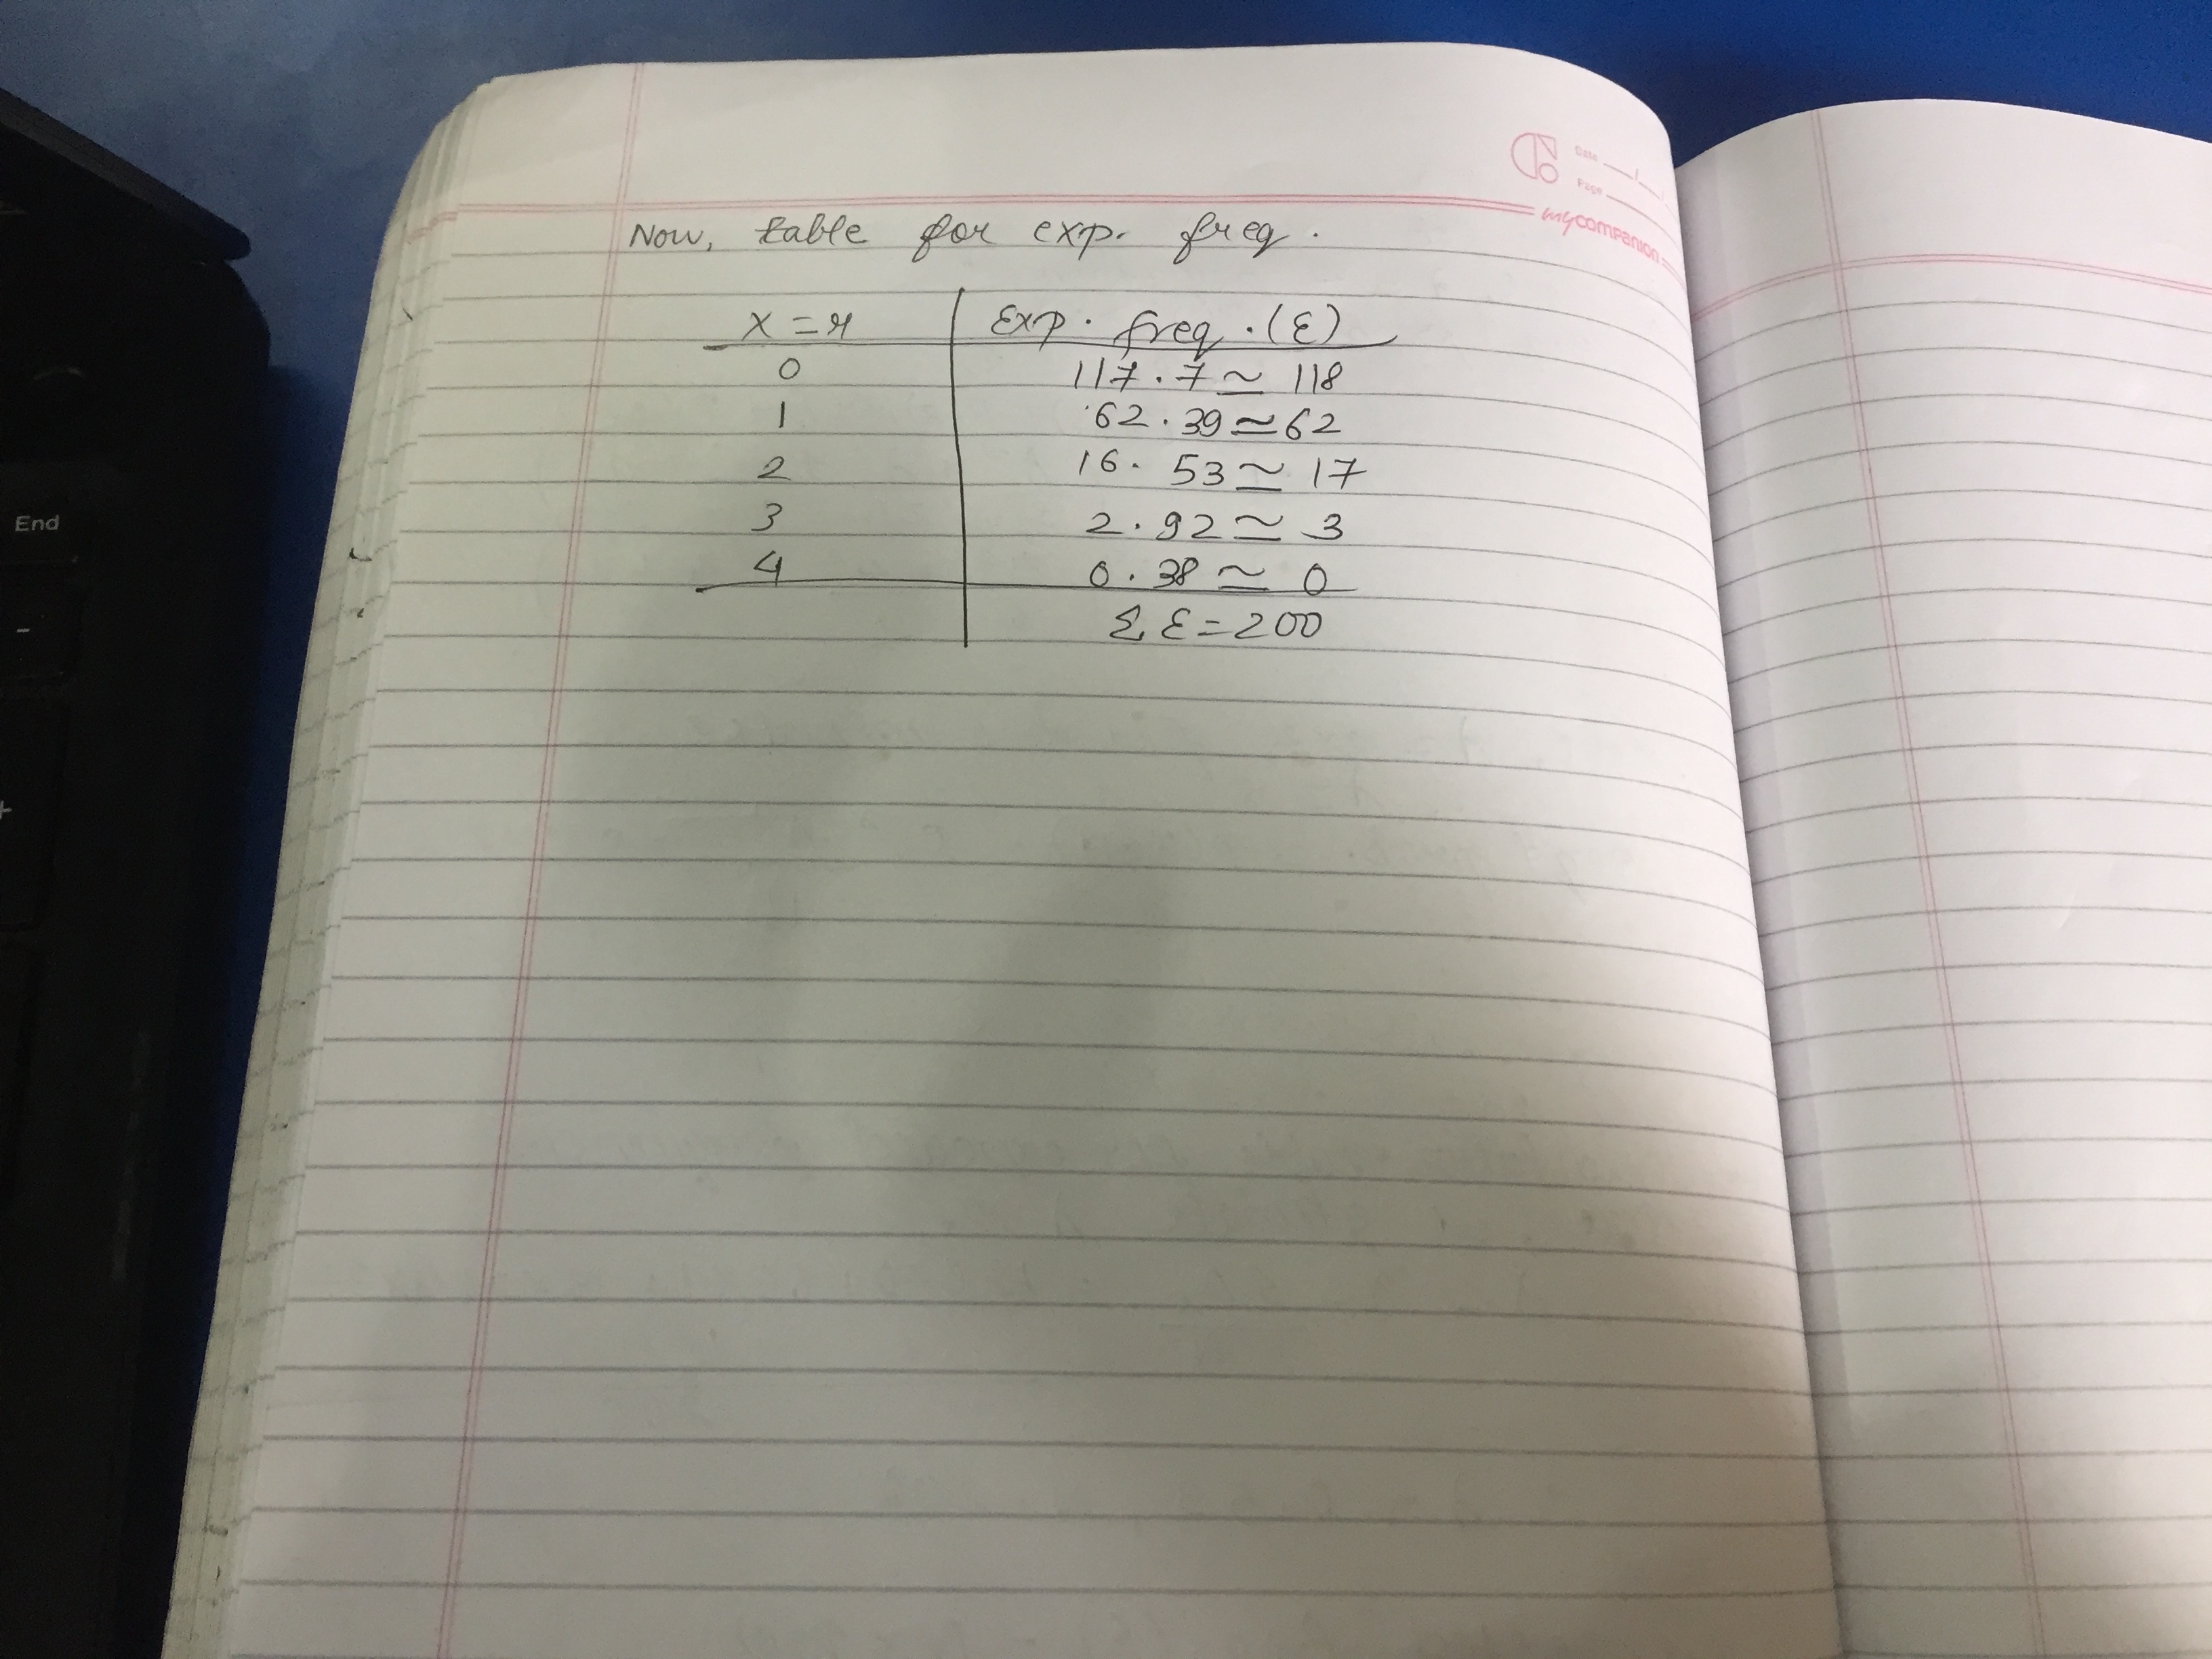 End
-
+
Date
Page
mycompanion
Now, table for exp. freq.
X = x Exp. freq. (E)
0 117.7 ≃ 118
1 62.39 ≃ 62
2 16.53 ≃ 17
3 2.92 ≃ 3
4 0.38 ≃ 0
Σ E = 200